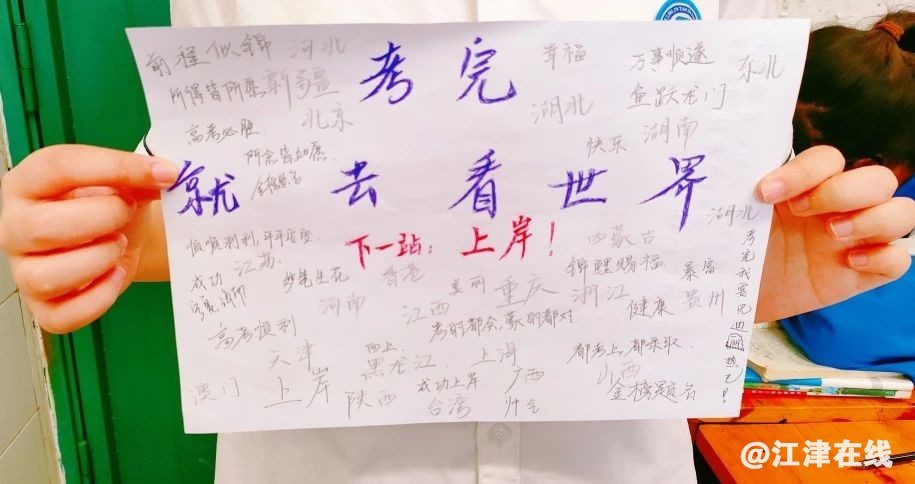 前程似锦 河北
考完
幸福
万事顺遂
东北
所得皆所愿
新疆
北京
湖北
鱼跃龙门
高考必胜
快乐 湖南
所念皆如愿
金榜题名
就去看世界
湖北
下一站：上岸！
顺顺利利，平平安安
江苏
成功
妙笔生花
香港
西蒙古
锦鲤赐福
暴富
河南
江西
美丽
重庆
浙江
健康
贵州
高考顺利
考的都会，蒙的都对
天津
黑龙江
上海
都考上，都录取
澳门
上岸
陕西
成功上岸
台湾
广西
帅气
山西
金榜题名
@江津在线